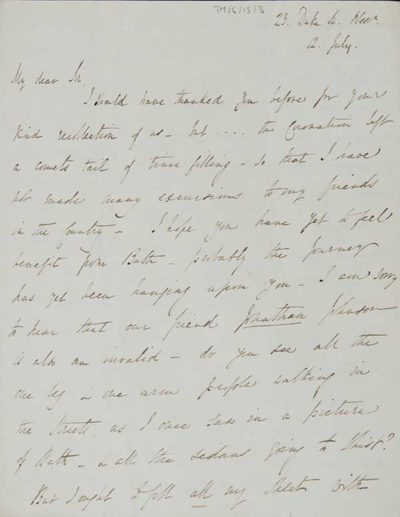 TM/6/15/3
23. Duke St.
12. July.
My dear Sir,
I should have thanked you before for your
kind recollection of us - but .... the Coronation left
a comets tail of time filling - so that I have
not made many excursions to my friends
in the Country - I hope you have yet to feel
benefit from Bath - probably the Journey
has yet been hanging upon you - I am sorry
to hear that our friend Jonathan Johnson
is also an invalid - do you see all the
one leg, & one arm people walking in
the Streets, as I once saw in a picture
of Bath - & all the Sedans going to Whist?
But I ought to fill all my Sheet with